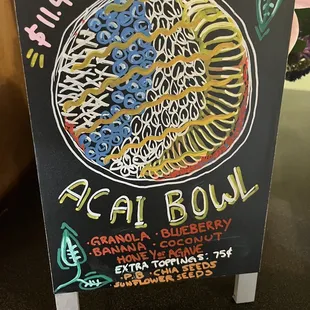 ACAI BOWL
·GRANOLA ·BLUEBERRY
·BANANA ·COCONUT
HONEY or AGAVE
EXTRA TOPPINGS: 75¢
·P.B ·CHIA SEEDS
·SUNFLOWER SEEDS